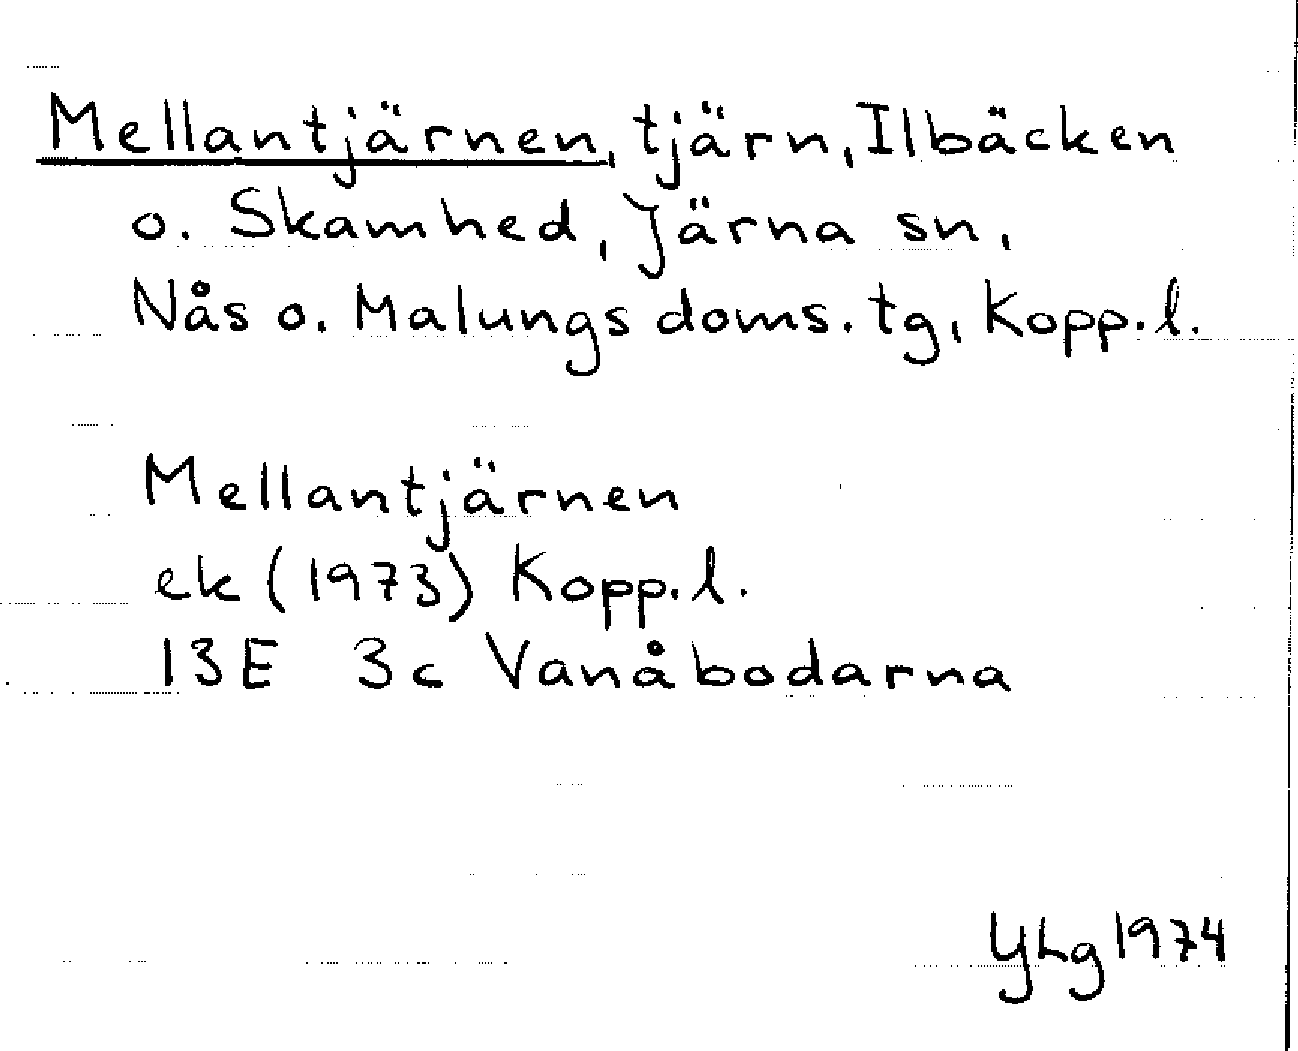 Mellantjärnen, tjärn, Ilbäcken
o. Skamhed, Järna sn,
Nås o. Malungs doms. tg, Kopp. l.
Mellantjärnen
ek (1973) Kopp. l.
13E 3c Vanåbodarna
YLg 1974